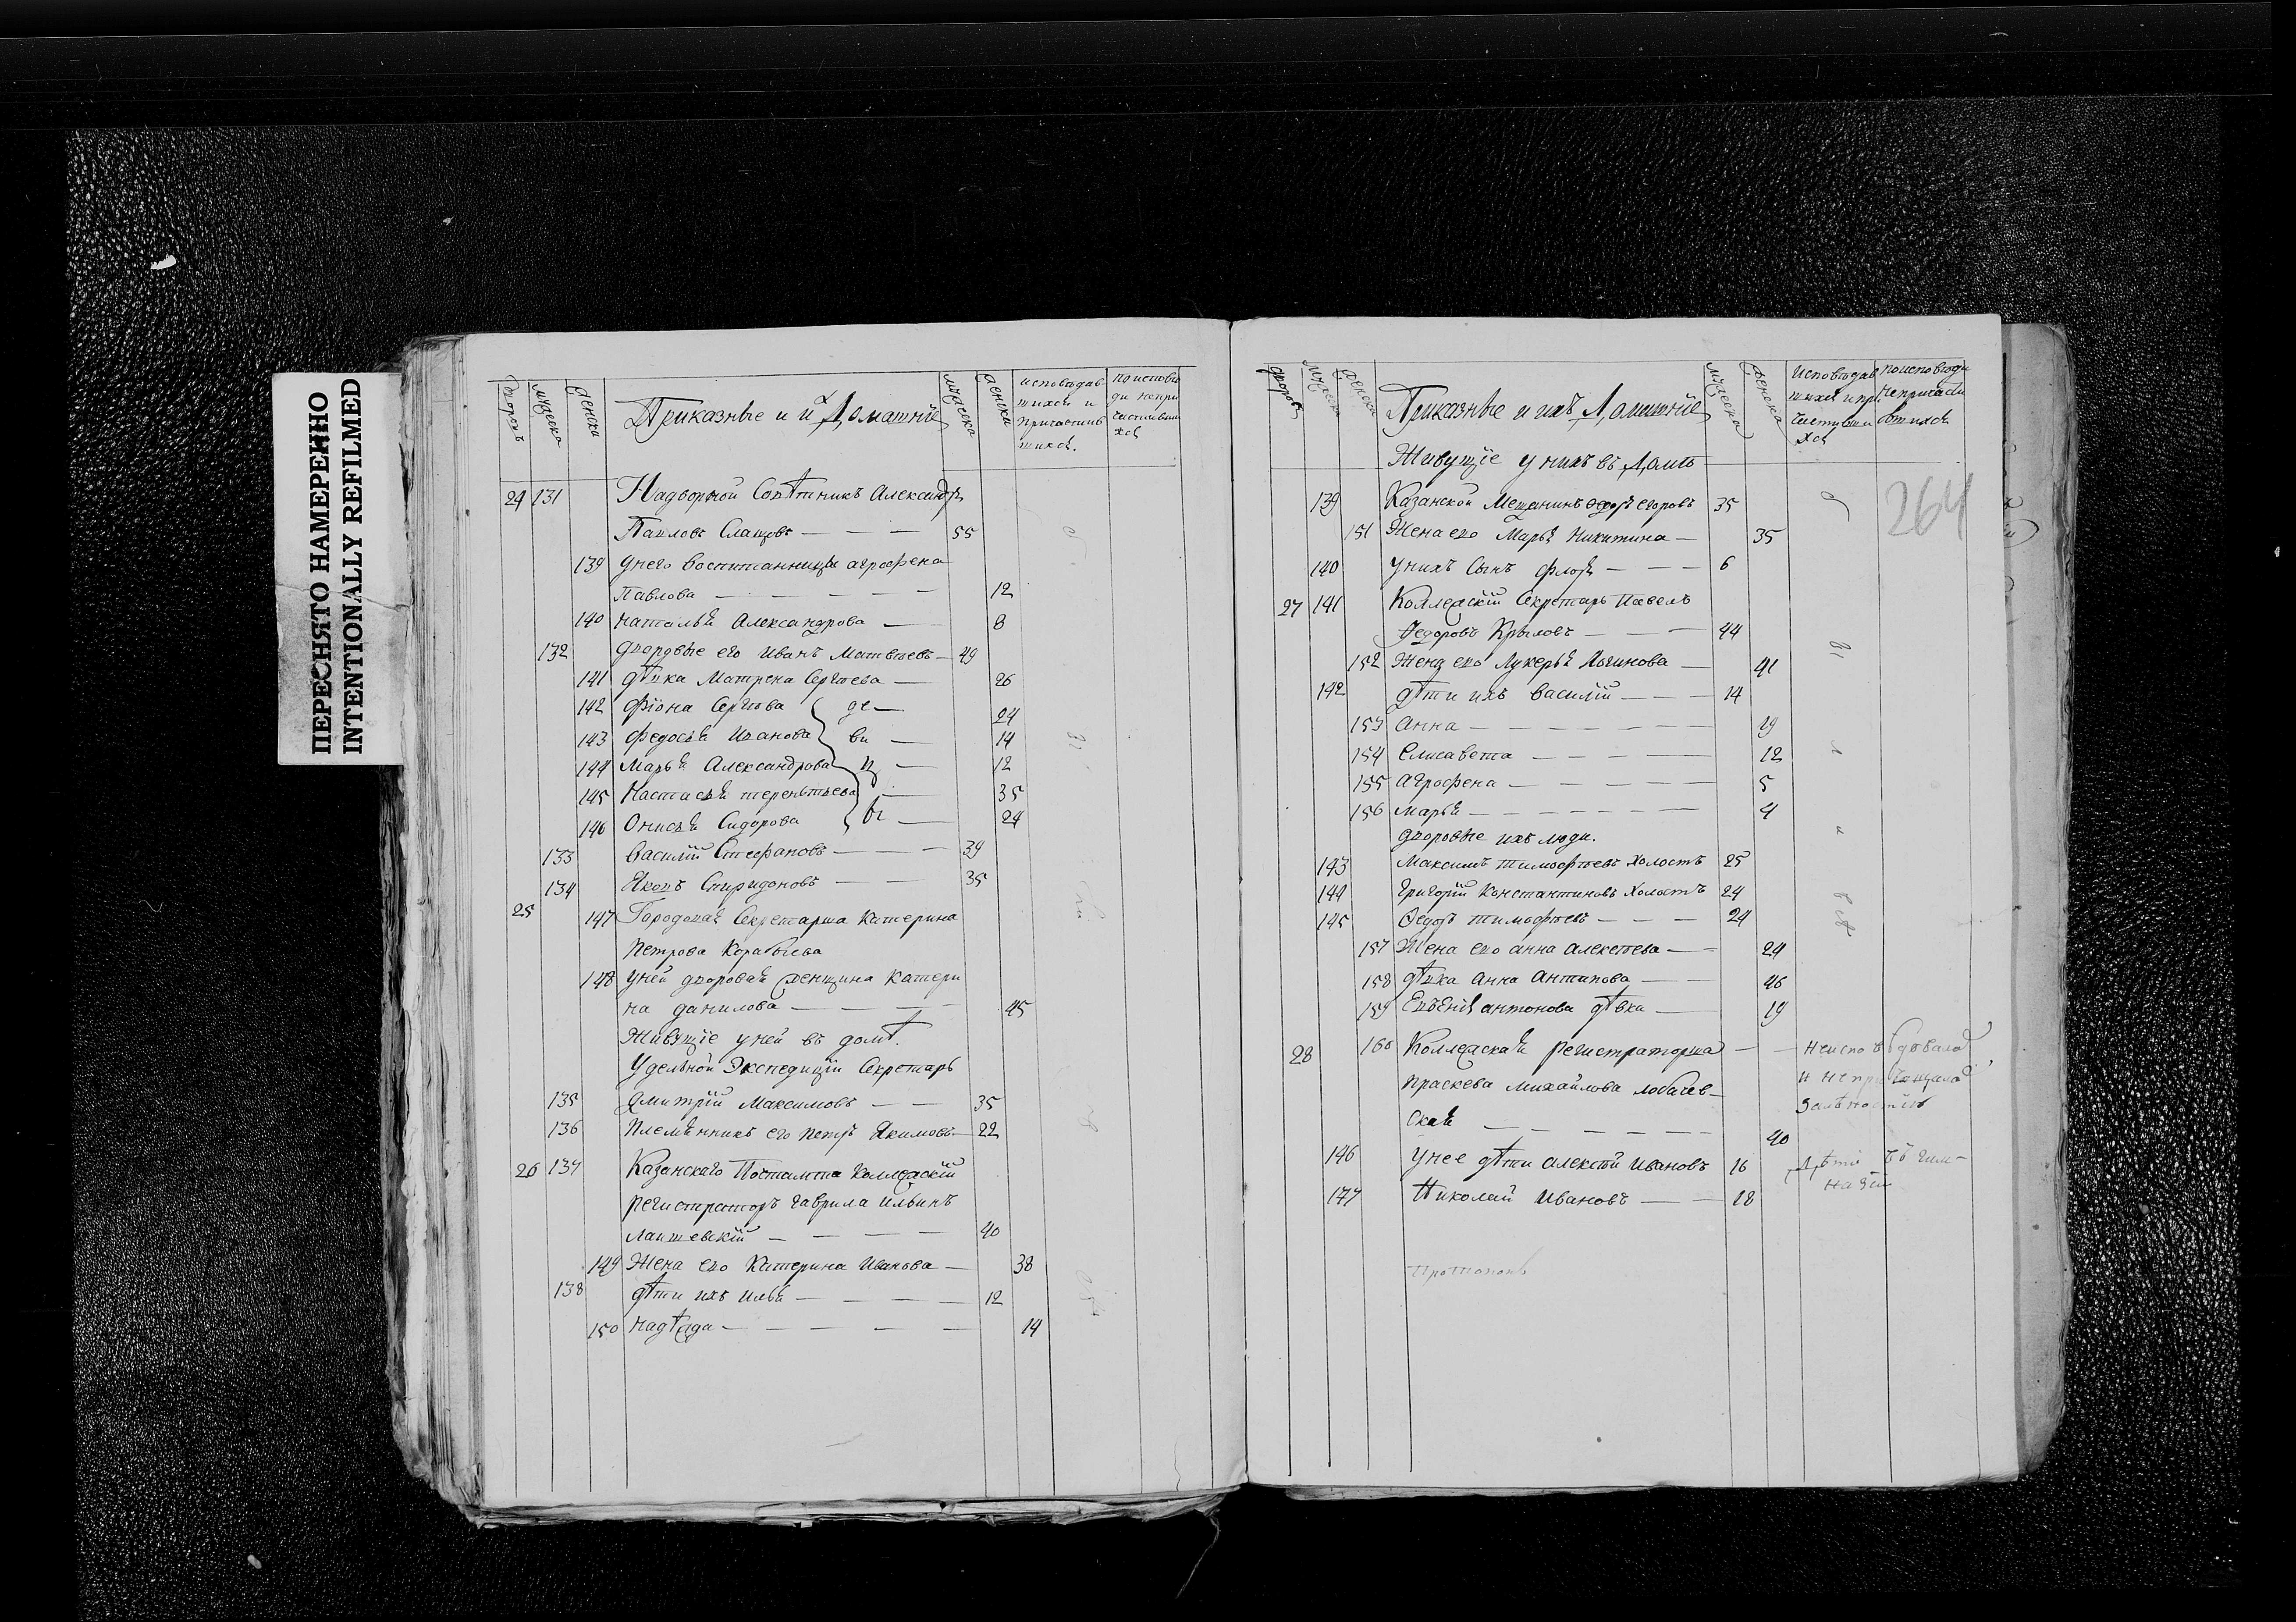 ПЕРЕСНЯТО НАМЕРЕННО
INTENTIONALLY REFILMED
дворовъ мужеска женска Приказные и ихъ Домашніе мужеска женска исповѣдав
шихся и
причастив
шихся. по исповѣ
ди непри
частивши
хся
24 131 Надворной Совѣтникъ Александръ
Павловъ Слащовъ — — — 55
139 у него воспитанницы агрофена
Павлова — — — — — — 12
140 наталья Александрова — 8
132 дворовые его Иванъ Матвѣевъ — 49
141 дѣвка Матрена Сергѣева — 26
142 Фіона Сергѣева де — 24
143 Федосья Иванова ви — 14
144 Марья Александрова ц — 12
145 Настасья терентьева — 35
146 Онисья Сидорова ы — 24
133 Василій Стефановъ — — — 39
134 Яковъ Спиридоновъ — — 35
25 147 Городовая Секретарша Катерина
Петрова Корабьева
148 у ней дворовая женщина катери
на данилова — — — — 45
Живущіе у ней въ домѣ.
Удельной Экспедиціи Секретарь
135 Дмитрій Максимовъ — — 35
136 Племянникъ его Петръ Якимовъ — 22
26 137 Казанскаго Почтамта Коллежскій
регистраторъ Гаврила Ильинъ
Лаишевскій — — — — 40
149 Жена его Катерина Иванова — 38
138 дѣти ихъ илья — — — — 12
150 надѣжда — — — — — 14
дворовъ мужеска женска Приказные и ихъ Домашніе мужеска женска Исповѣдав
шихся и при
частивши
хся по исповѣди
непричасти
вшихся
Живущіе у нихъ въ Домѣ
264
139 Казанской Мещанинъ Ѳедоръ егоровъ 35
151 Жена его Марья Никитина — 35
140 у нихъ Сынъ флоръ — — — 6
27 141 Коллежскій Секретарь Павелъ
Федоровъ Крыловъ — — — 44
152 Жена его Лукерья Логинова — 41
142 дѣти ихъ Василій — — — 14
153 Анна — — — — — — 19
154 Елисавета — — — — 12
155 Агрофена — — — — — 5
156 Марья — — — — — — 4
дворовые ихъ люди.
143 Максимъ тимофѣевъ холостъ 25
144 Григорій Константиновъ холостъ 24
145 Ѳедоръ тимофѣевъ — — — 24
157 Жена его анна алексѣева — 24
158 дѣвка анна Антипова — — 46
159 Евгенія антонова дѣвка — 19
28 160 Коллежская регистраторша — — Неисповѣдвалась
Праскева Михайлова лобачев- и непричащалась
ская — — — — — 40
146 У нее дѣти алексѣй Ивановъ 16 Дѣти въ гим-
назіи
147 Николай Ивановъ — — 18